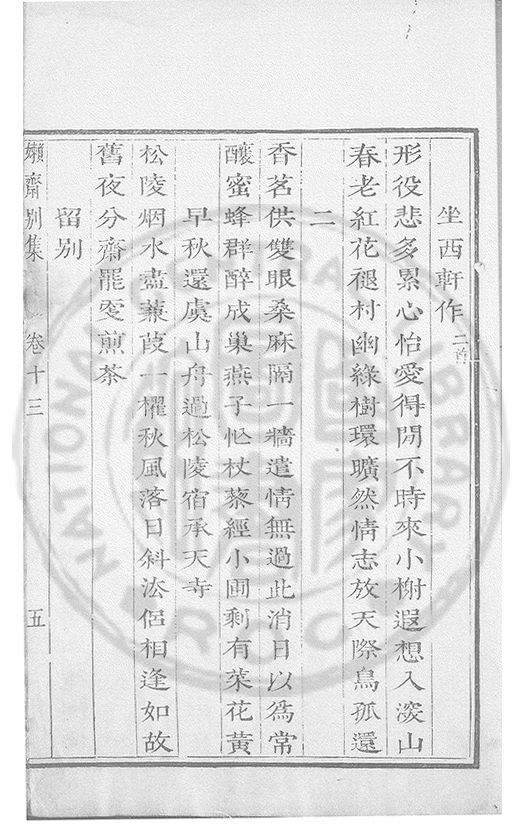 坐西軒作二首
形役悲多累心怡愛得閒不時來小榭遐想入深山
春老紅花褪村幽綠樹環曠然情志放天際鳥孤還
二
香茗供雙眼桑麻隔一牆遣情無過此消日以爲常
釀蜜蜂群醉成巢燕子忙杖藜經小圃剩有菜花黃
早秋還虞山舟過松陵宿承天寺
松陵烟水盡蒹葭一櫂秋風落日斜法侶相逢如故
舊夜分齋罷更煎茶
留别
嬾齋别集
卷十三
五
NATIONAL CENTRAL LIBRARY